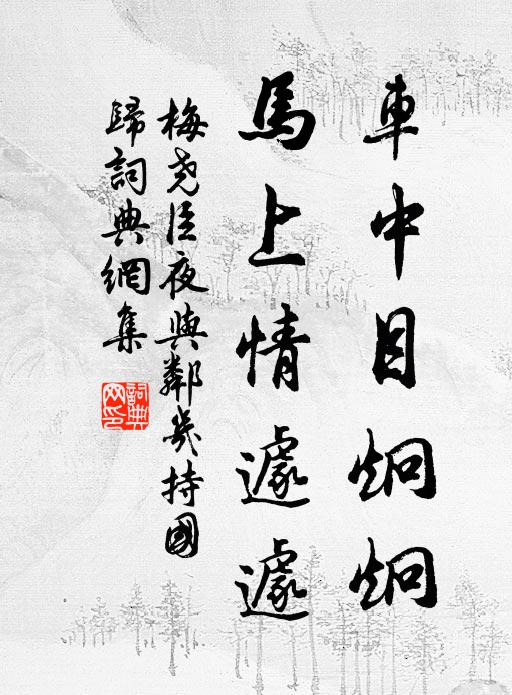 車中目炯炯
馬上情遽遽
梅堯臣夜與鄰幾持國
歸詞典網集
詞典網印